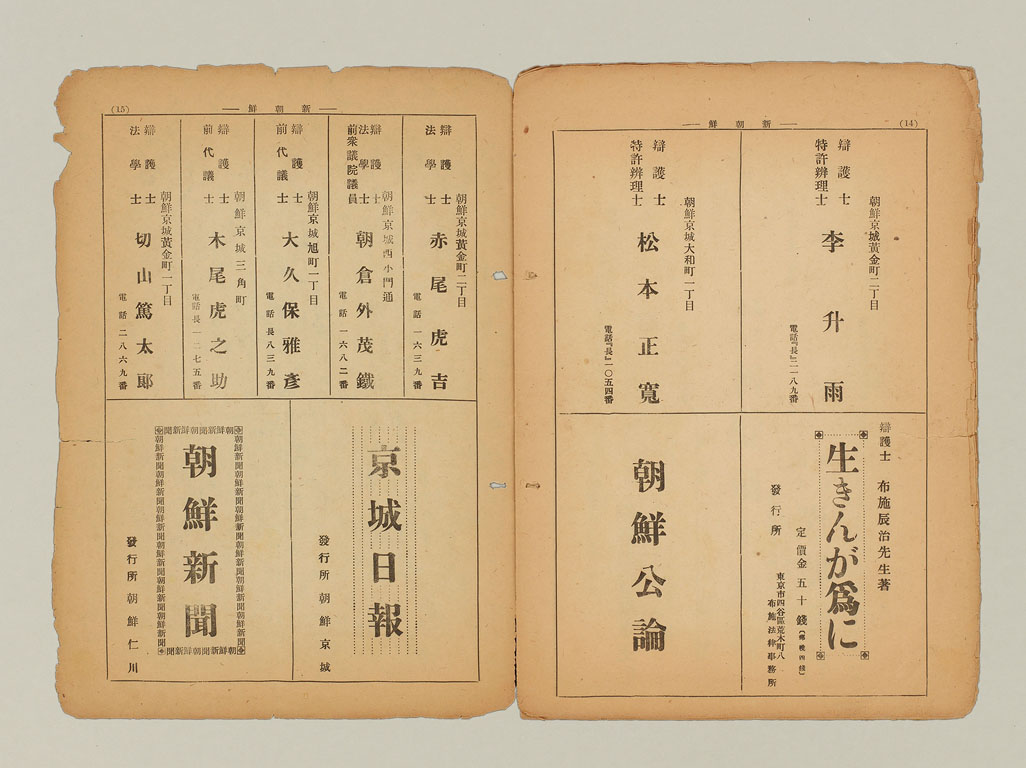 (14)
― 新朝鮮 ―
朝鮮京城黃金町二丁目
辯護士
特許辨理士
李升雨
電話『長』二一八九番
朝鮮京城大和町一丁目
辯護士
特許辨理士
松本正寬
電話『長』一〇五四番
辯護士 布施辰治先生著
生きんが爲に
定價金五十錢
發行所
東京市四谷區荒木町八
布施法律事務所
朝鮮公論
(15)
― 新朝鮮 ―
朝鮮京城黃金町二丁目
辯護士
法學士
赤尾虎吉
電話 一六三九番
朝鮮京城西小門通
辯護士
法學士
前衆議院議員
朝倉外茂鐵
電話 一六八二番
朝鮮京城旭町一丁目
辯護士
前代議士
大久保雅彥
電話長八三九番
朝鮮京城三角町
辯護士
前代議士
木尾虎之助
電話長一二七五番
朝鮮京城黃金町一丁目
辯護士
法學士
切山篤太郞
電話 二八六九番
京城日報
發行所 朝鮮京城
朝鮮新聞朝鮮新聞朝鮮新聞
朝鮮新聞
發行所 朝鮮仁川